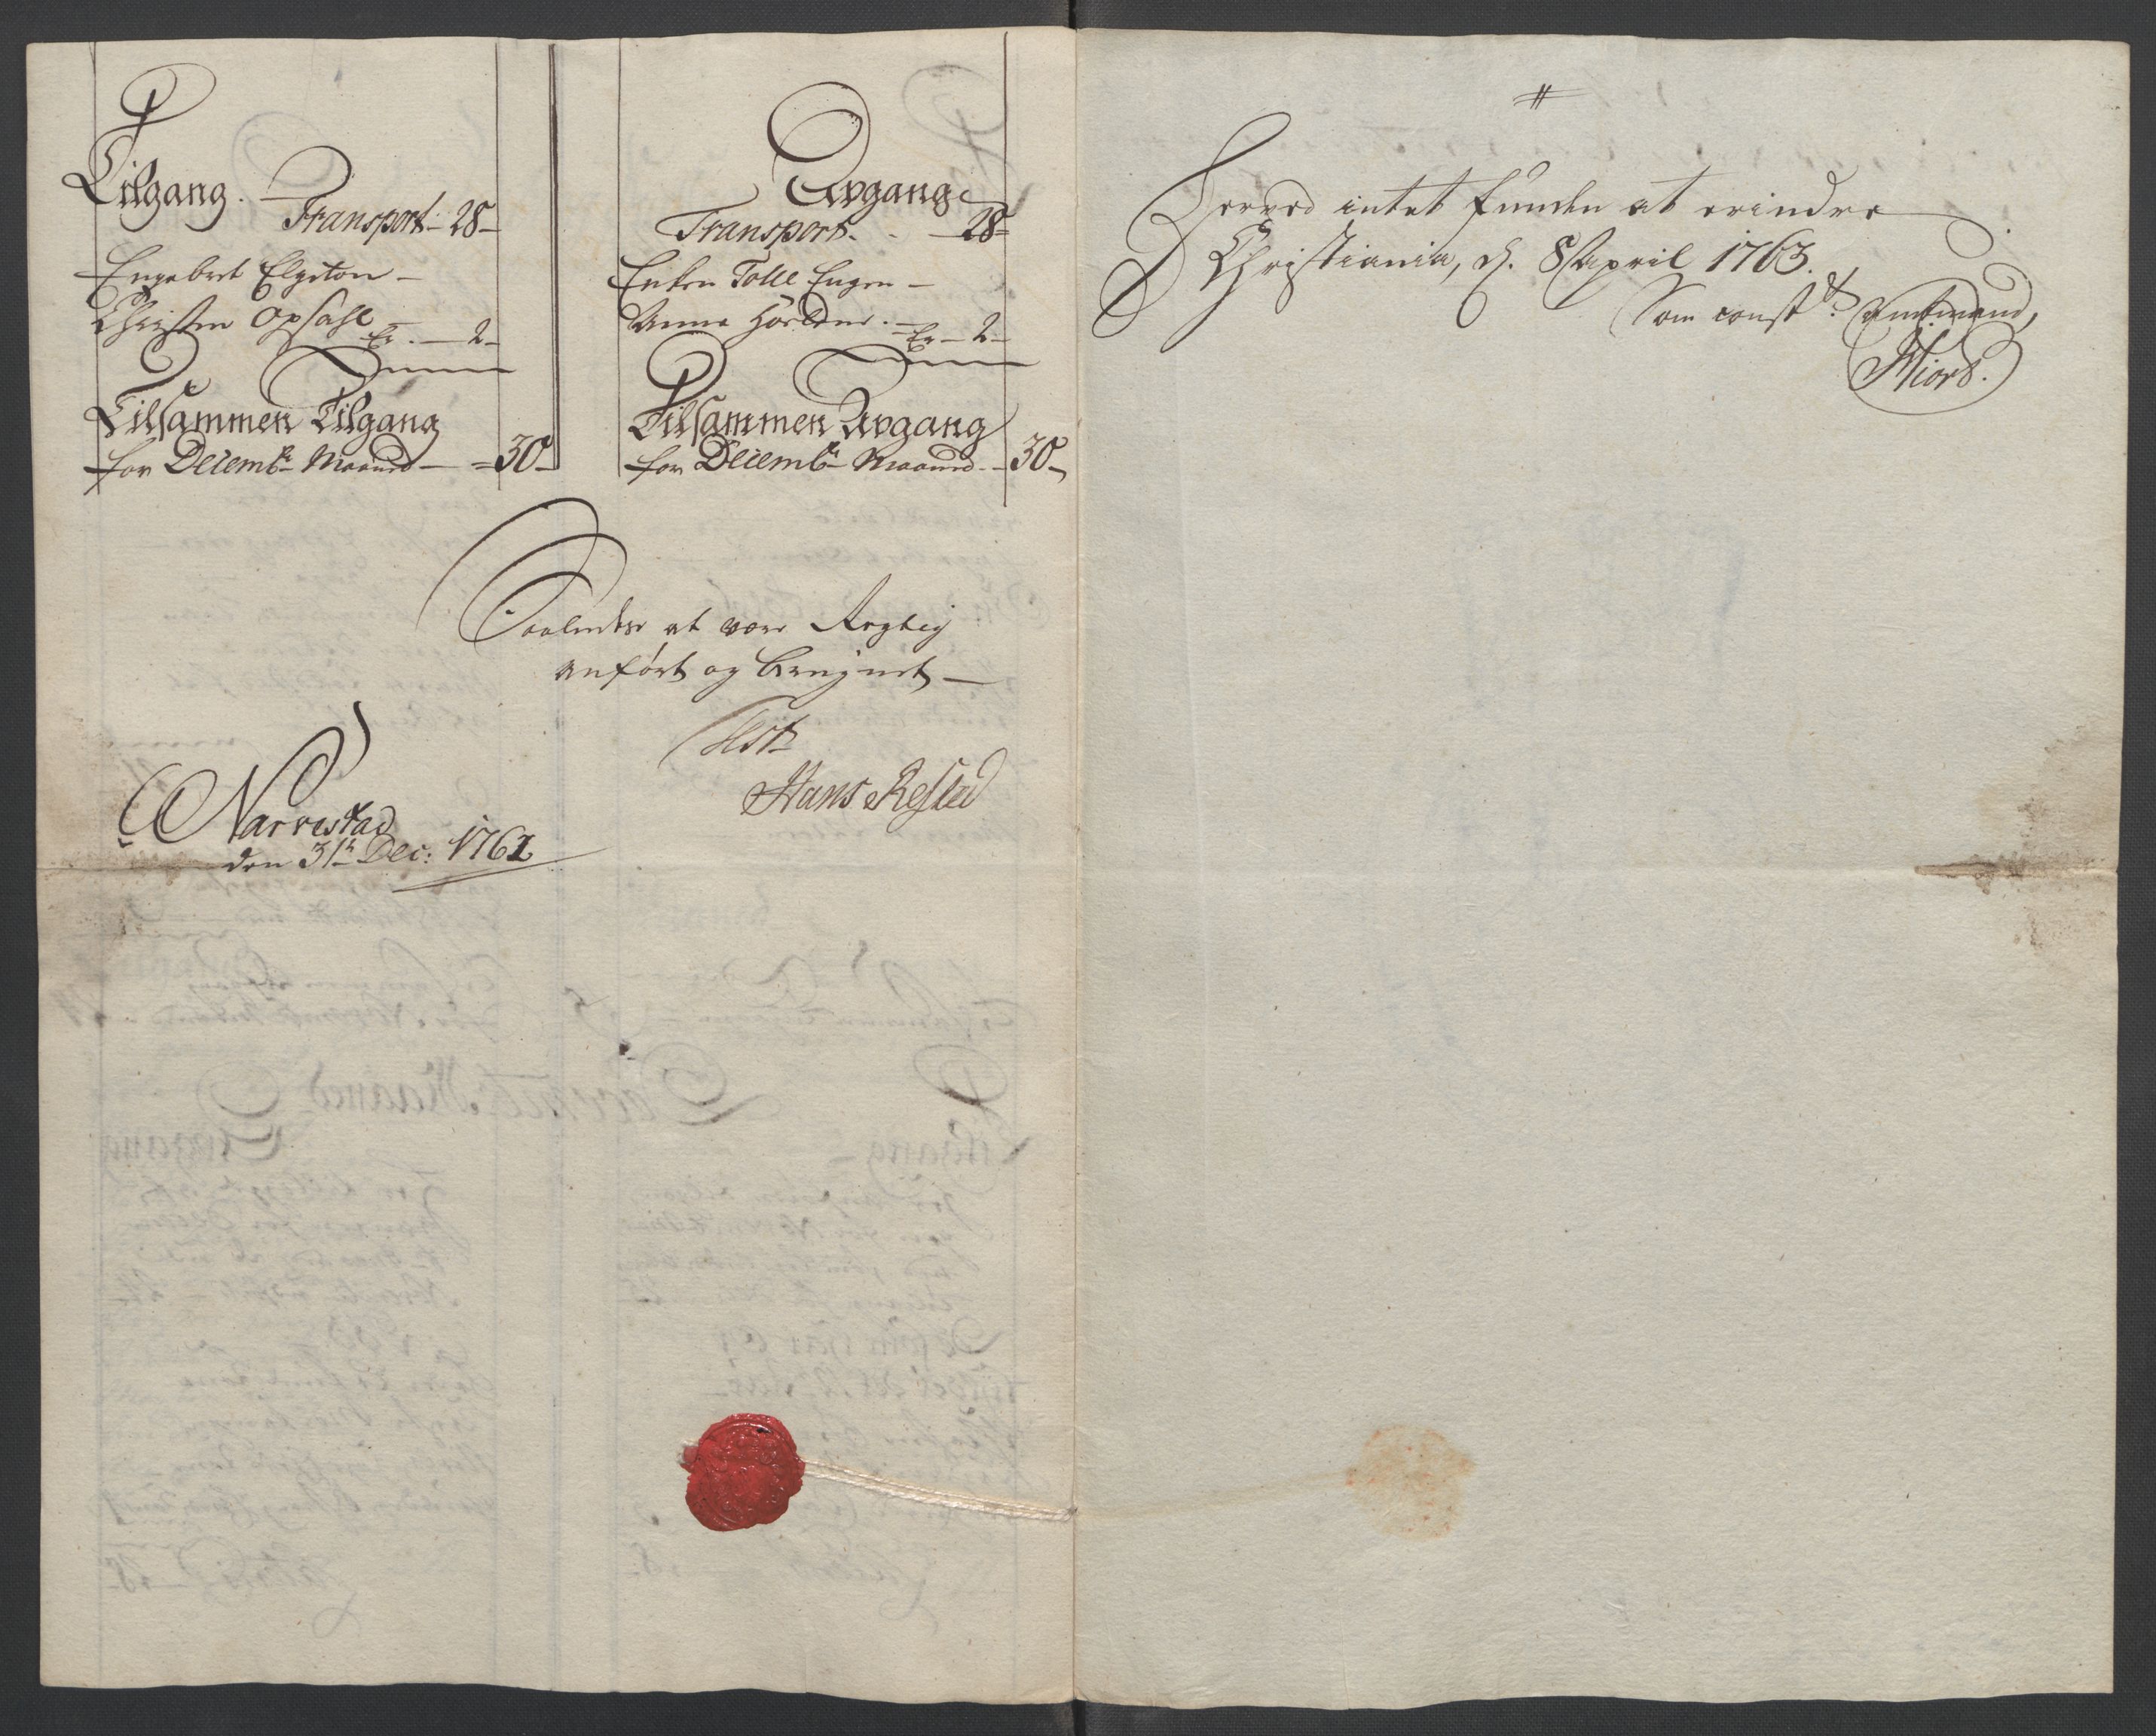 Tilgang.
Transport - 28 -
Engebret Elgeton -
Christen Opsahl -
Er. - 2 -
Tilsammen Tilgang
for Decemb:r Maaned - = 30 -
Avgang
Transport. - 28 =
Enken Tolle Engen -
Anna Hörte
Er - 2 -
Tilsammen Avgang
for Decemb:r Maaned - 30 -
Saaledes at være Rigtig
anfört og beregnet -
Test
Hans Restad
Narvestad
den 31te Dec: 1762
#
Herved intet funden at erindre
Christiania, d. 8 April 1763.
Som const:d Amtmand,
Hiort.